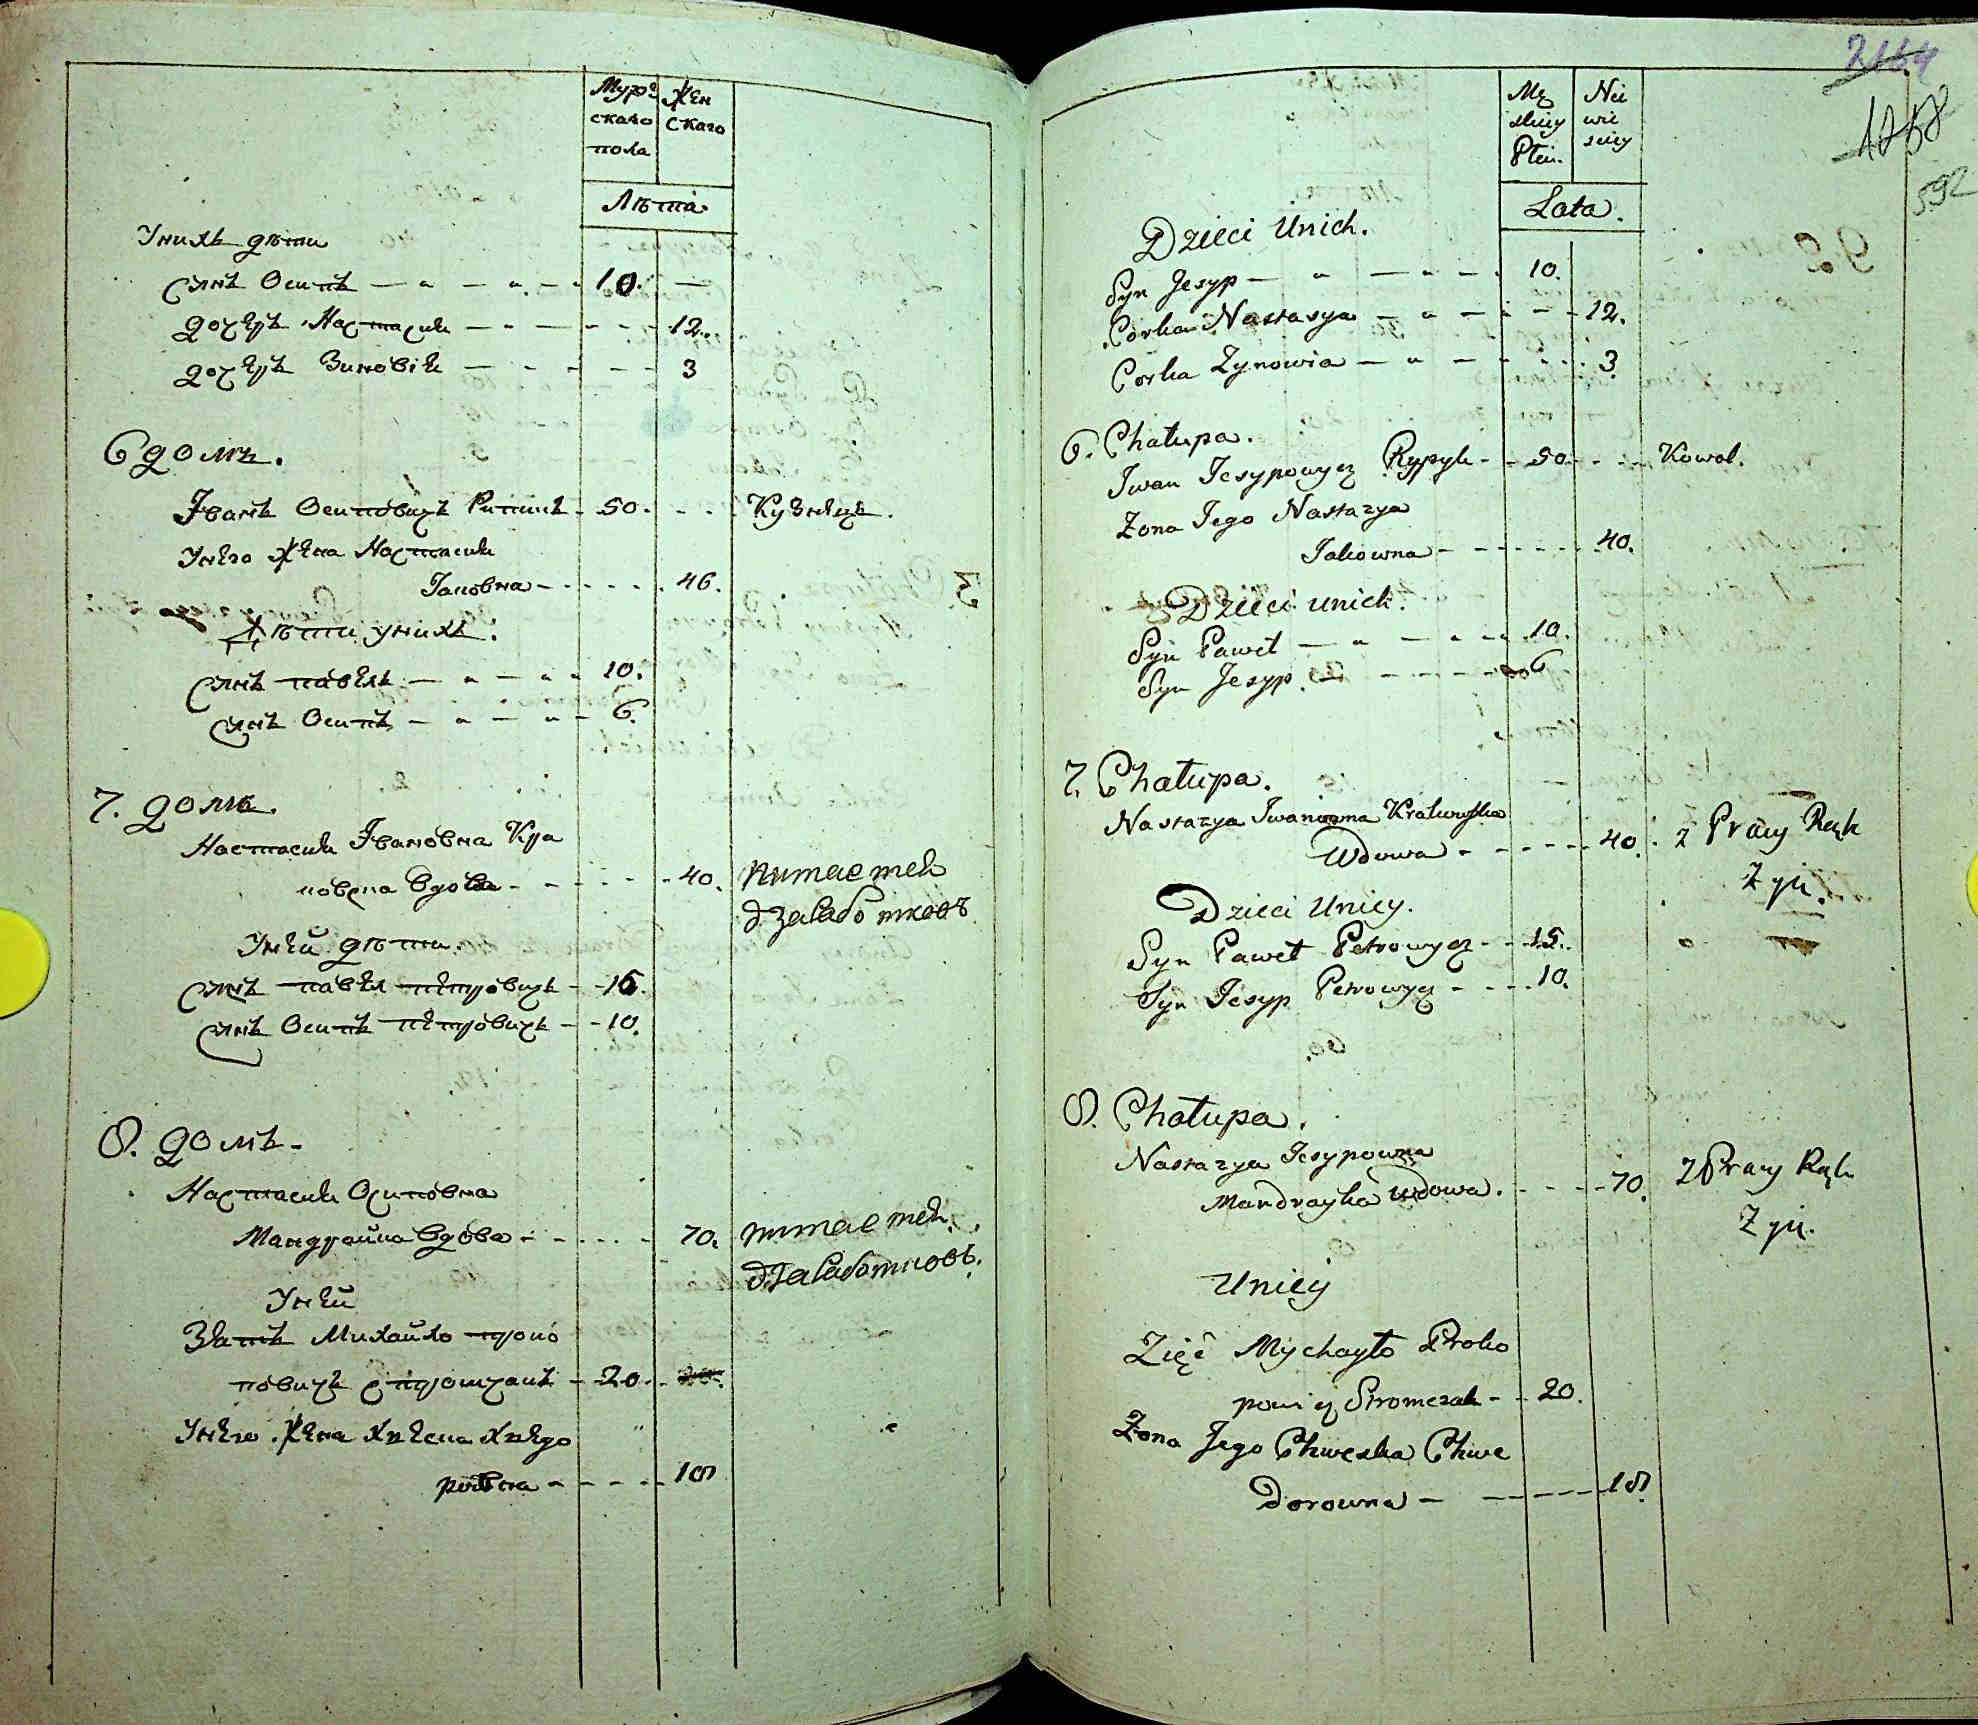 Мужескаго пола
Женскаго
Лѣта.
Унихъ дѣти
Сынъ Осипъ 10. —
дочеръ Настасия 12.
дочеръ Зиновія 3
6 домъ.
Іванъ Осиповичъ Рипикъ 50. Кузнецъ.
Унего жена Настасия
Іаковна 46.
Дѣти унихъ.
Сынъ павелъ 10.
Сынъ Осипъ 6.
7. домъ.
Настасия Івановна Кра
вдова 40. питается
Унѣй дѣти.
Сынъ павел пѣтровичъ 15.
Сынъ Осипъ пѣтровичъ 10.
8. домъ.
Настасия Осиповна
Мандрайка вдова 70. питается
Унѣй
Зятъ Михайло проко
повичъ Стромчакъ 20.
Унего жена Хвеска Хведо
ровна 18
2164
1258
592
Mę
skiey
Płci.
Nie
wie
sciey
Lata.
Dzieci Unich.
Syn Jesyp 10.
Corka Nastasya 12.
Corka Zynowia 3.
6. Chałupa.
Iwan Jesypowycz Rypyk 50 Kowal.
Zona Jego Nastazya
Jakowna 40.
Dzieci unich.
Syn Paweł 10.
Syn Jesyp 6
7. Chałupa.
Nastazya Iwanowna
Wdowa 40. z Pracy Ręk
Zyie.
Dzieci Uniey.
Syn Paweł Petrowycz 15.
Syn Jesyp Petrowycz 10.
8. Chałupa.
Nastazya Jesypowna
Mandrayka Wdowa. 70. z Pracy Ręk
Zyie.
Uniey
Zięć Mychayło Proko
powicz Stromczak 20.
Zona Jego Chweska Chwe
dorowna 18.